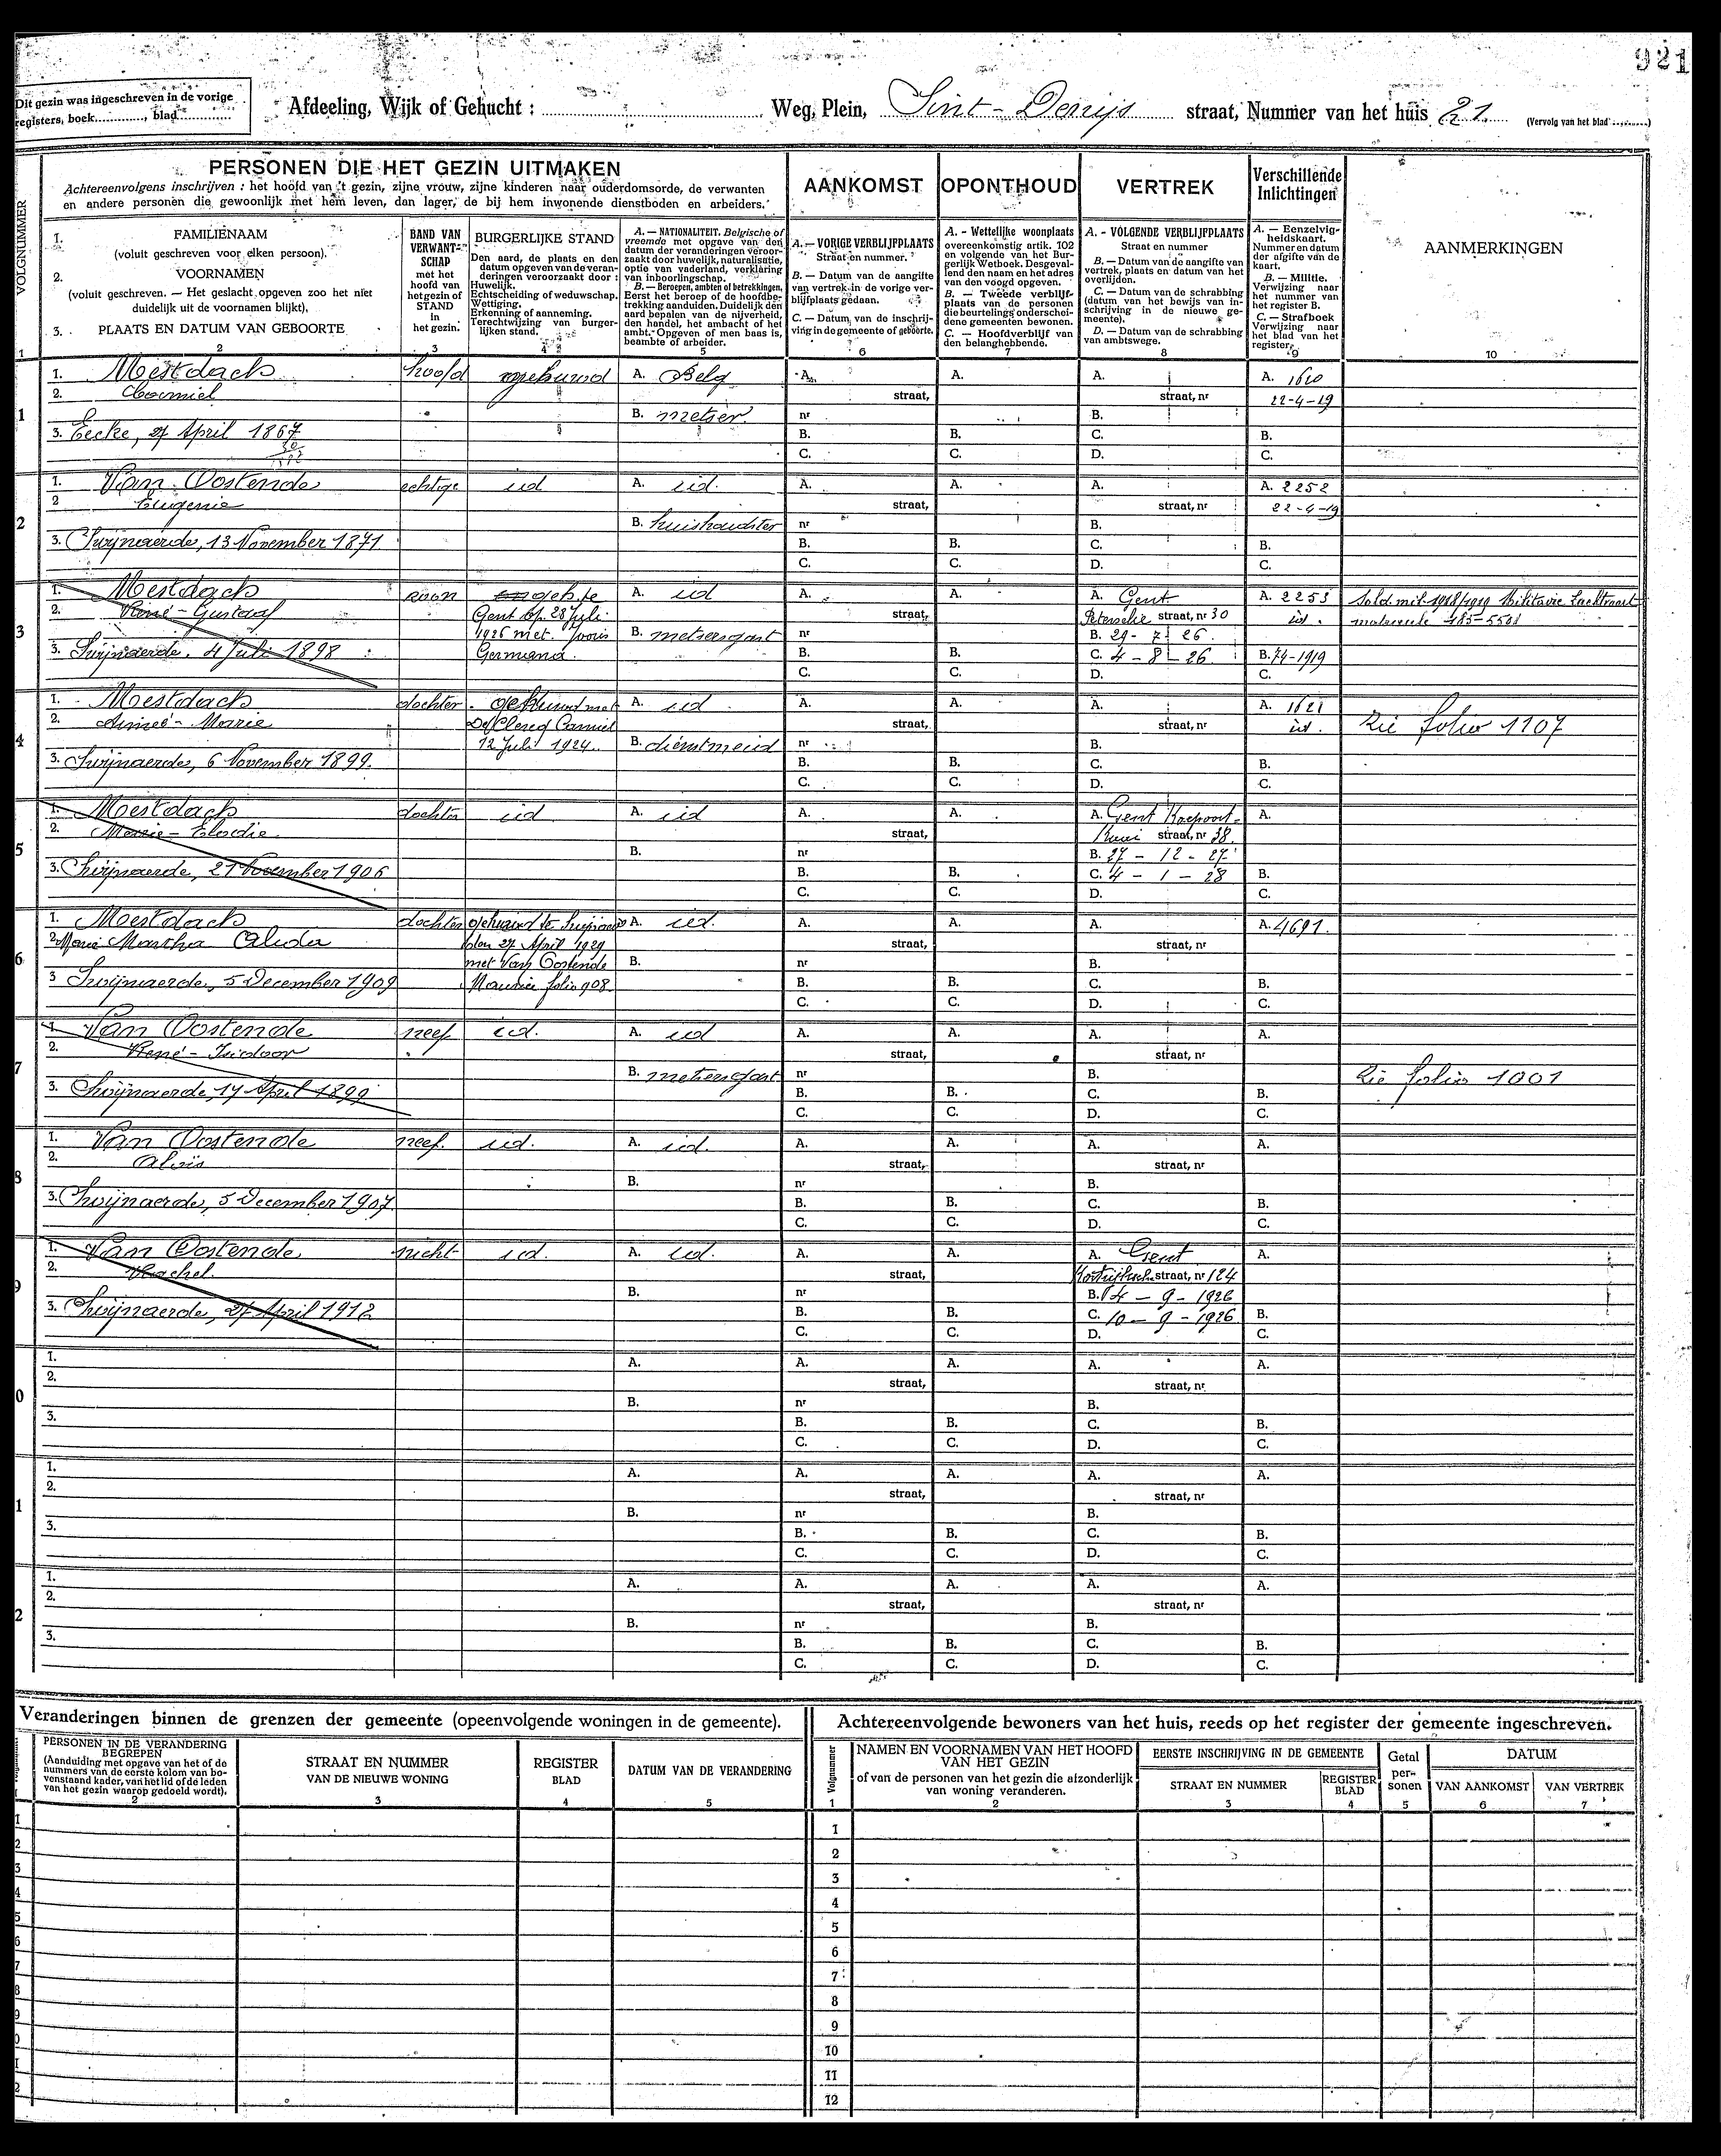 921
Dit gezin was ingeschreven in de vorige
registers, boek............, blad............
Afdeeling, Wijk of Gehucht : ........ Weg, Plein, Sint-Denijs straat, Nummer van het huis 21. (Vervolg van het blad ........)
VOLGNUMMER
PERSONEN DIE HET GEZIN UITMAKEN
Achtereenvolgens inschrijven : het hoofd van 't gezin, zijne vrouw, zijne kinderen naar ouderdomsorde, de verwanten
en andere personen die gewoonlijk met hem leven, dan lager, de bij hem inwonende dienstboden en arbeiders.
AANKOMST
OPONTHOUD
VERTREK
Verschillende
Inlichtingen
AANMERKINGEN
1. FAMILIENAAM
(voluit geschreven voor elken persoon).
2. VOORNAMEN
(voluit geschreven. — Het geslacht opgeven zoo het niet
duidelijk uit de voornamen blijkt),
3. PLAATS EN DATUM VAN GEBOORTE
BAND VAN
VERWANT-
SCHAP
met het
hoofd van
het gezin of
STAND
in
het gezin.
BURGERLIJKE STAND
Den aard, de plaats en den
datum opgeven van de veran-
deringen veroorzaakt door :
Huwelijk.
Echtscheiding of weduwschap.
Wettiging.
Erkenning of aanneming.
Terechtwijzing van burger-
lijken stand.
A. — NATIONALITEIT. Belgische of
vreemde met opgave van den
datum der veranderingen veroor-
zaakt door huwelijk, naturalisatie,
optie van vaderland, verklaring
van inboorlingschap.
B. — Beroepen, ambten of betrekkingen.
Eerst het beroep of de hoofdbe-
trekking aanduiden. Duidelijk den
aard bepalen van de nijverheid,
den handel, het ambacht of het
ambt. Opgeven of men baas is,
beambte of arbeider.
A. — VORIGE VERBLIJFPLAATS
Straat en nummer.
B. — Datum van de aangifte
van vertrek in de vorige ver-
blijfplaats gedaan.
C. — Datum van de inschrij-
ving in de gemeente of geboorte.
A. - Wettelijke woonplaats
overeenkomstig artik. 102
en volgende van het Bur-
gerlijk Wetboek. Desgeval-
lend den naam en het adres
van den voogd opgeven.
B. — Tweede verblijf-
plaats van de personen
die beurtelings onderschei-
dene gemeenten bewonen.
C. — Hoofdverblijf van
den belanghebbende.
A. - VOLGENDE VERBLIJFPLAATS
Straat en nummer
B. — Datum van de aangifte van
vertrek, plaats en datum van het
overlijden.
C. — Datum van de schrabbing
(datum van het bewijs van in-
schrijving in de nieuwe ge-
meente).
D. — Datum van de schrabbing
van ambtswege.
A. — Eenzelvig-
heidskaart.
Nummer en datum
der afgifte van de
kaart.
B. — Militie.
Verwijzing naar
het nummer van
het register B.
C. — Strafboek
Verwijzing naar
het blad van het
register.
1 2 3 4 5 6 7 8 9 10
1
1. Mestdach hoofd gehuwd A. Belg A. A. A. A. 1620
2. straat, straat, nr 22-4-19
B. metser. nr B.
3. Eecke, 27 April 1867 B. B. C. B.
C. C. D. C.
2
1. Van Oostende echtge id A. id. A. A. A. A. 2252
2 Eugenie straat, straat, nr 22-4-19
B. huishoudster nr B.
3. Swijnaerde, 13 November 1871 B. B. C. B.
C. C. D. C.
3
1. Mestdach zoon A. id A. A. A. Gent A. 2253 Sold. mil. 1918/1919
2. René-Gustaaf Gent op 28 Juli straat, straat, nr 30 id.
1926 met Joris B. metsersgast nr B. 29-7-26.
3. Swijnaerde, 4 Juli 1898 Germana. B. B. C. 4-8-26 B. 74-1919
C. C. D. C.
4
1. Mestdach dochter gehuwd met A. id A. A. A. A. 1621
2. Aimeé-Marie De Clercq Camiel straat, straat, nr id. Zie folio 1107
12 Juli 1924. B. dienstmeid nr B.
3. Swijnaerde, 6 November 1899. B. B. C. B.
C. C. D. C.
5
1. Mestdach dochter id A. id A. A. A. Gent A.
2. Marie-Elodie straat, straat, nr 38.
B. nr B. 27-12-27
3. Swijnaerde, 21 November 1906 B. B. C. 4-1-28 B.
C. C. D. C.
6
1. Mestdach dochter gehuwd te A. id. A. A. A. A. 4691.
2. Marie Martha Alida den 27 April 1929 straat, straat, nr
met Van Oostende B. nr B.
3 Swijnaerde, 5 December 1909 Maurice folio 908. B. B. C. B.
C. C. D. C.
7
1. Van Oostende neef id. A. id A. A. A. A.
2. René-Isidoor straat, straat, nr
B. metsersgast nr B. Zie folio 1001
3. Swijnaerde, 17 April 1899 B. B. C. B.
C. C. D. C.
8
1. Van Oostende neef. id. A. id. A. A. A. A.
2. Aloïs straat, straat, nr
B. nr B.
3. Swijnaerde, 5 December 1907. B. B. C. B.
C. C. D. C.
9
1. Van Oostende nicht id. A. id. A. A. A. Gent A.
2. Rachel. straat, straat, nr 124
B. nr B. 4-9-1926
3. Swijnaerde, 27 April 1912 B. B. C. 10-9-1926 B.
C. C. D. C.
0
1. A. A. A. A. A.
2. straat, straat, nr
B. nr B.
3. B. B. C. B.
C. C. D. C.
1
1. A. A. A. A. A.
2. straat, straat, nr
B. nr B.
3. B. B. C. B.
C. C. D. C.
2
1. A. A. A. A. A.
2. straat, straat, nr
B. nr B.
3. B. B. C. B.
C. C. D. C.
Veranderingen binnen de grenzen der gemeente (opeenvolgende woningen in de gemeente).
PERSONEN IN DE VERANDERING
BEGREPEN
(Aanduiding met opgave van het of de
nummers van de eerste kolom van bo-
venstaand kader, van het lid of de leden
van het gezin waarop gedoeld wordt).
STRAAT EN NUMMER
VAN DE NIEUWE WONING
REGISTER
BLAD
DATUM VAN DE VERANDERING
2 3 4 5
1
2
3
4
5
6
7
8
9
0
1
2
Achtereenvolgende bewoners van het huis, reeds op het register der gemeente ingeschreven.
Volgnummer
NAMEN EN VOORNAMEN VAN HET HOOFD
VAN HET GEZIN
of van de personen van het gezin die afzonderlijk
van woning veranderen.
EERSTE INSCHRIJVING IN DE GEMEENTE
STRAAT EN NUMMER
REGISTER
BLAD
Getal
per-
sonen
DATUM
VAN AANKOMST
VAN VERTREK
1 2 3 4 5 6 7
1
2
3
4
5
6
7
8
9
10
11
12